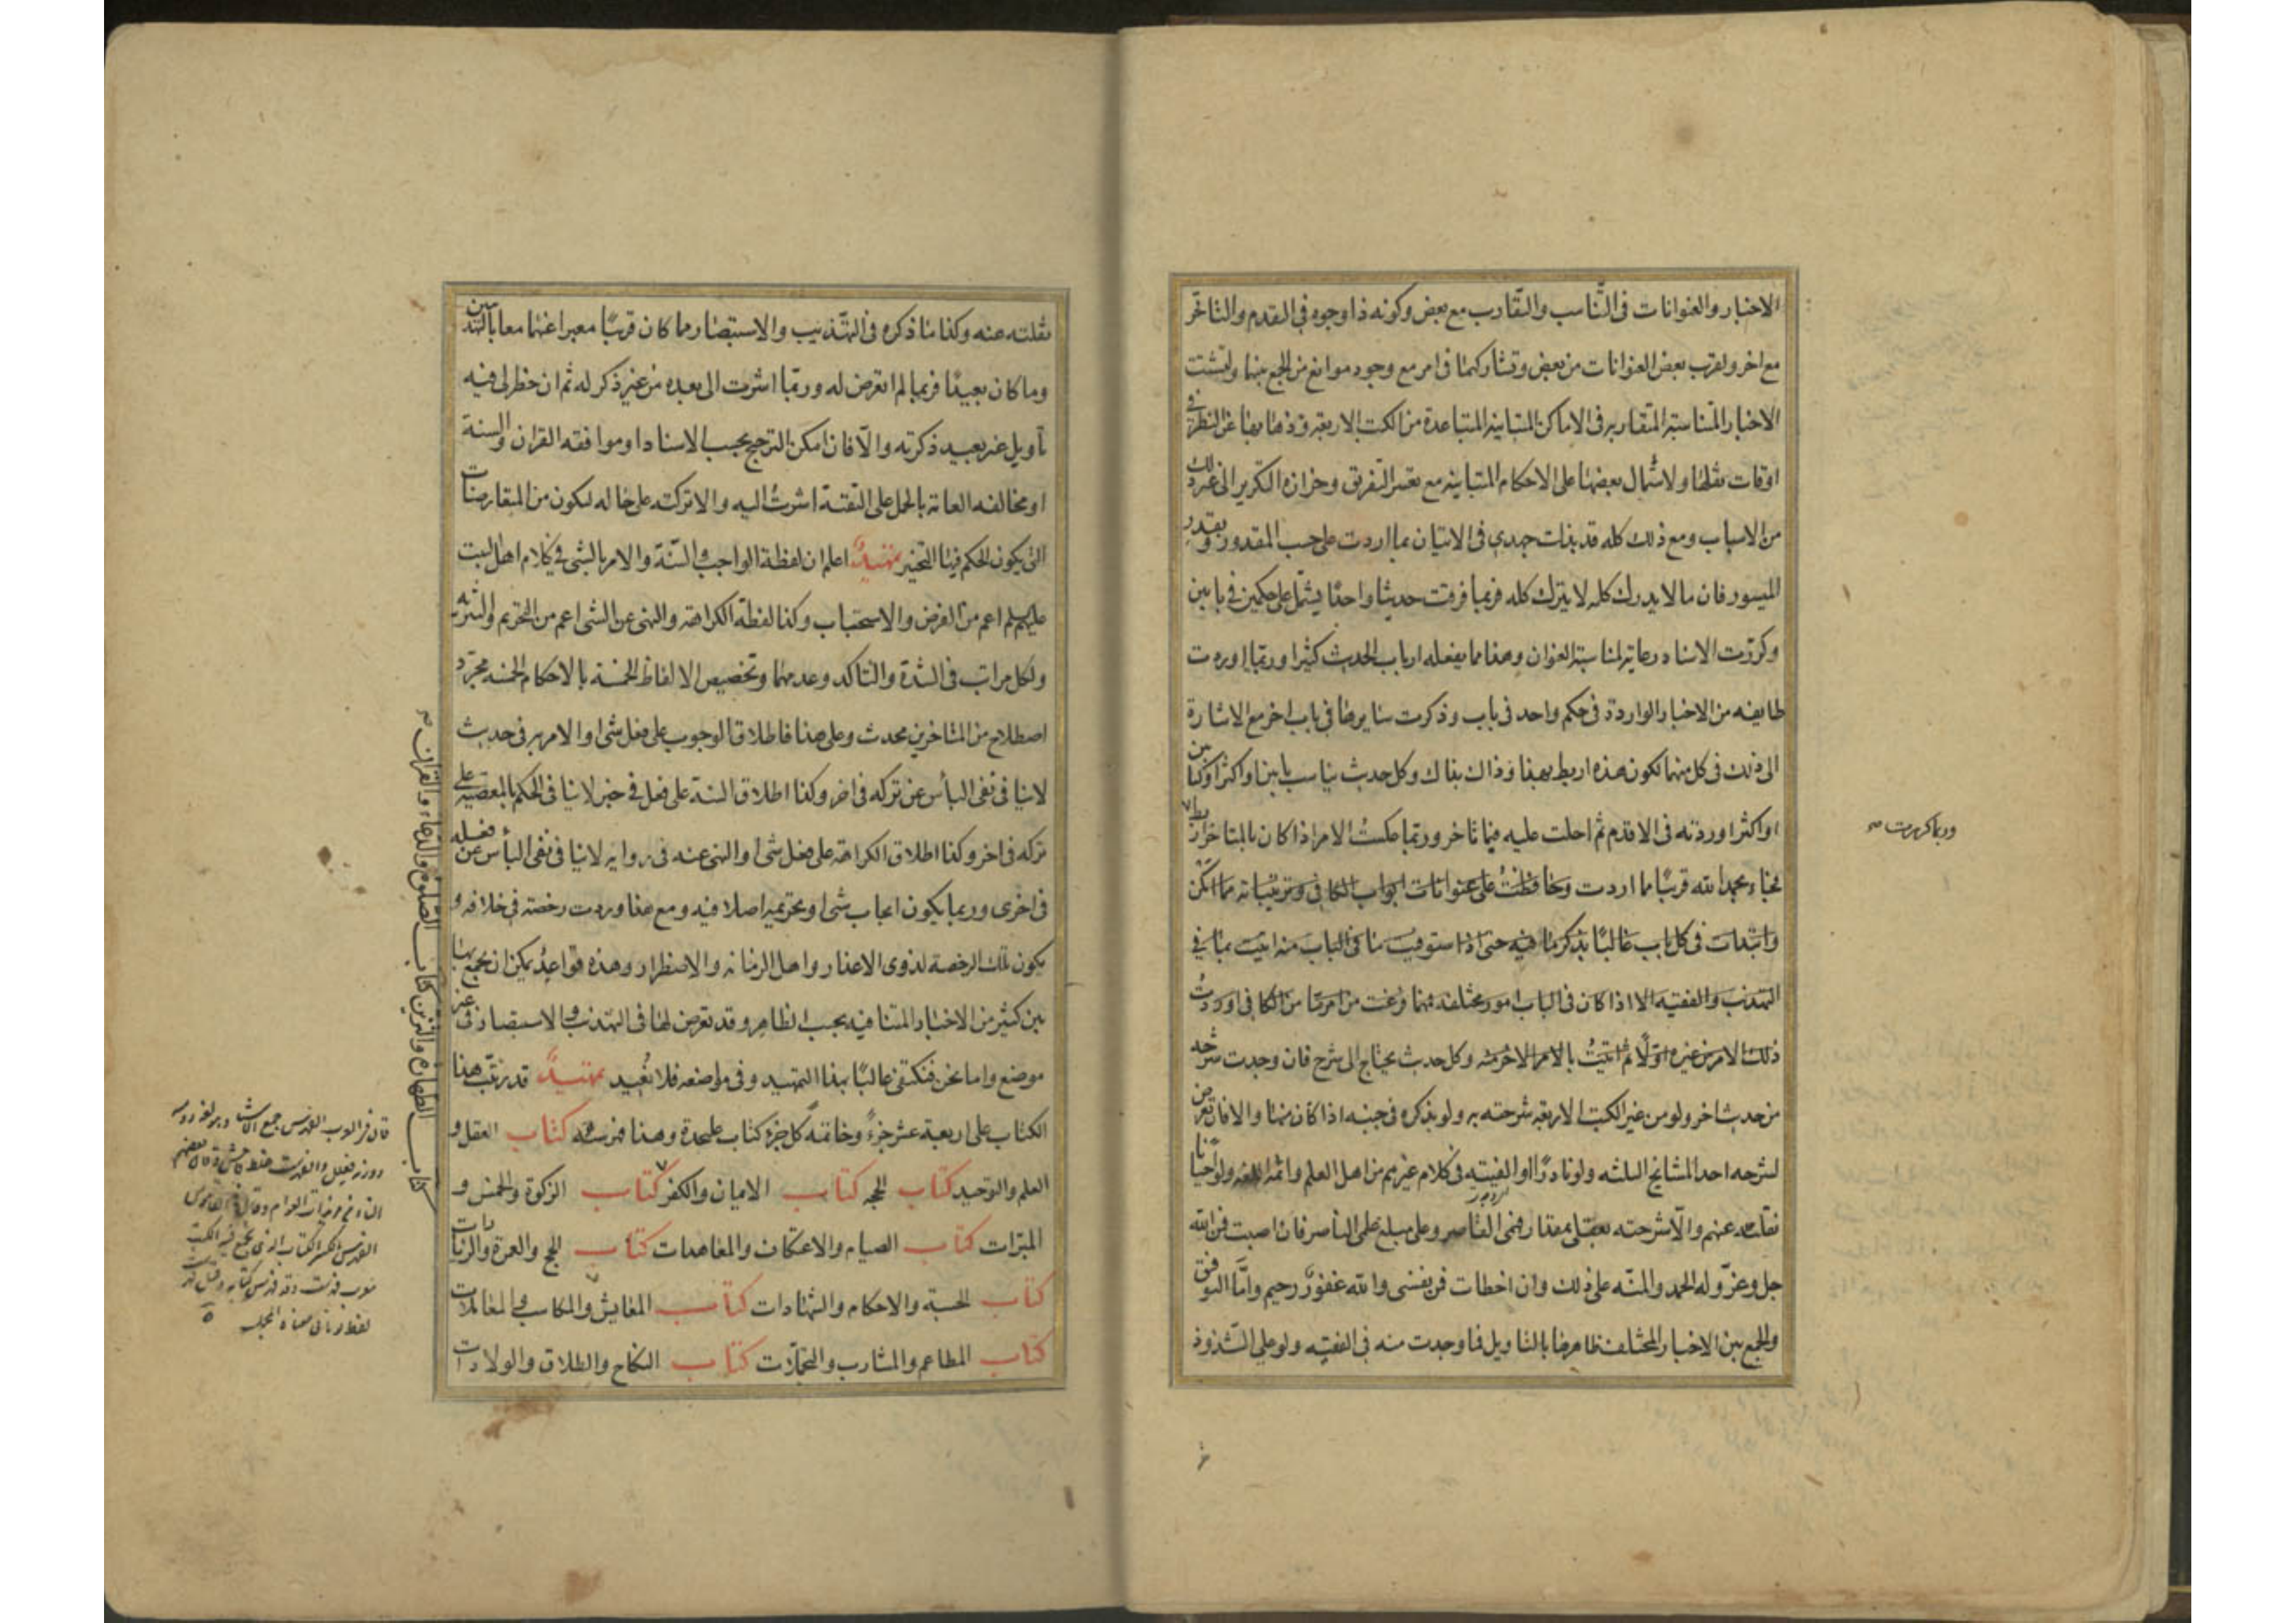 الاخبار والعنوانات فى التناسب والتقارب مع بعض وكونه ذا وجوه فى التقدم والتاخر
مع اخر ولقرب بعض العنوانات من بعض وتشاركهما فى امر مع وجود موانع من الجمع بينها ولتشتت
الاخبار المتناسبة المتقاربه فى الاماكن المتباينة المتباعدة من الكتب الاربعة وذهابها عن النظر فى
اوقات نقلها ولاشتمال بعضها على الاحكام المتباينه مع تعسر التفريق وحزازه التكرير الى غير ذلك
من الاسباب ومع ذلك كله قد بذلت جهدى فى الاتيان بما اردت على حسب المقدور وبقدر
الميسور فان ما لا يدرك كله لا يترك كله فربما فرقت حديثا واحدًا يشتمل على حكمين فى بابين
وكررت الاسناد رعاية لمناسبة العنوان وهذا مما يفعله ارباب الحديث كثيرا وربما اوردت
طايفه من الاخبار الواردة فى حكم واحد فى باب وذكرت سايرها فى باب اخر مع الاشارة
الى ذلك فى كل منهما لكون هذه اربط بهذا وذاك بذاك وكل حديث يناسب بابين او اكثر او كتابين
او اكثر اوردته فى الاقدم ثم احلت عليه فيما تاخر وربما عكست الامر اذا كان بالمتاخر اربط
وربما كررت صح
فجاء بحمد الله قريبًا مما اردت وحافظت على عنوانات ابواب الكافى وترتيباته مما امكن
وابتدات فى كل باب غالبًا بذكر ما فيه حتى اذا استوفيت ما فى الباب منه اتيت بما فى
التهذيب والفقيه الا اذا كان فى الباب امور مختلفه فمهما فرغت من امر ما من الكافى اوردت
ذلك الامر من غيره اولًا ثم اتيت بالامر الاخر منه وكل حديث يحتاج الى شرح فان وجدت شرحه
من حديث اخر ولو من غير الكتب الاربعة شرحته به ولو بذكره فى جنبه اذا كان منها والا فان تعرض
لشرحه احد المشايخ الثلثه ولو نادرًا او الفيته فى كلام غيرهم من اهل العلم وائمة اللغه ولو احيانًا
نقلته عنهم والا شرحته بعقلى بمقدار فهمى القاصر وعلى مبلغ علمى الناصر فان اصبت فمن الله
جل وعز وله الحمد والمنّه على ذلك وان اخطات فمن نفسى والله غفور رحيم واما التوفيق
والجمع بين الاخبار المختلفة ظاهرها بالتاويل فما وجدت منه فى الفقيه ولو على الشذوذ
نقلته عنه وكذا ما ذكره فى التهذيب والاستبصار مما كان قريبًا معبرا عنهما معا بالتهذيبين
وما كان بعيدًا فربما لم اتعرض له وربما اشرت الى بعده من غير ذكر له ثم ان خطر لى فيه
تأويل غير بعيد ذكرته والا فان امكن الترجيح بحسب الاسناد او موافقه القران والسنة
او مخالفه العامة بالحمل على التقية اشرت اليه والا تركته على حاله ليكون من المتعارضات
التى يكون الحكم فيها التخيير تمهيد اعلم ان لفظة الواجب والسنّة والامر بالشى فى كلام اهل البيت
عليهم السلم اعم من الفرض والاستحباب وكذا لفظة الكراهة والنهى عن الشى اعم من التحريم والتنزيه
ولكل مراتب فى الشدة والتاكد وعدمهما وتخصيص الالفاظ الخمسة بالاحكام الخمسه مجرد
اصطلاح من المتاخرين محدث وعلى هذا فاطلاق الوجوب على فعل شى او الامر به فى حديث
لا ينافى نفى البأس عن تركه فى اخر وكذا اطلاق السنة على فعل فى خبر لا ينافى الحكم بالمعصية على
تركه فى اخر وكذا اطلاق الكراهة على فعل شى او النهى عنه فى رواية لا ينافى نفى البأس عن فعله
فى اخرى وربما يكون ايجاب شى او تحريمه اصلا فيه ومع هذا وردت رخصة فى خلافه و
يكون تلك الرخصة لذوى الاعذار واهل الزمانه والاضطرار وهذه قواعد يمكن ان يجمع بها
بين كثير من الاخبار المتنافيه بحسب الظاهر وقد تعرض لها فى التهذيب والاستبصار فى غير
موضع واما نحن فنكتفى غالبًا بهذا التمهيد وفى مواضعه فلا نعيد تمهيد قد رتبت هذا
الكتاب على اربعة عشر جزءً وخاتمه كل جزء كتاب على حدة وهذا فهرسته كتاب العقل و
العلم والتوحيد كتاب الحجه كتاب الايمان والكفر كتاب الزكوة والخمس و
المبرّات كتاب الصيام والاعتكاف والمعاهدات كتاب الحج والعمرة والزيارات
كتاب الحسبة والاحكام والشهادات كتاب المعايش والمكاسب والمعاملات
كتاب المطاعم والمشارب والتجملات كتاب النكاح والطلاق والولادات
كتاب الطهارة والتزين كتاب الصلوة والدعاء والقران صح